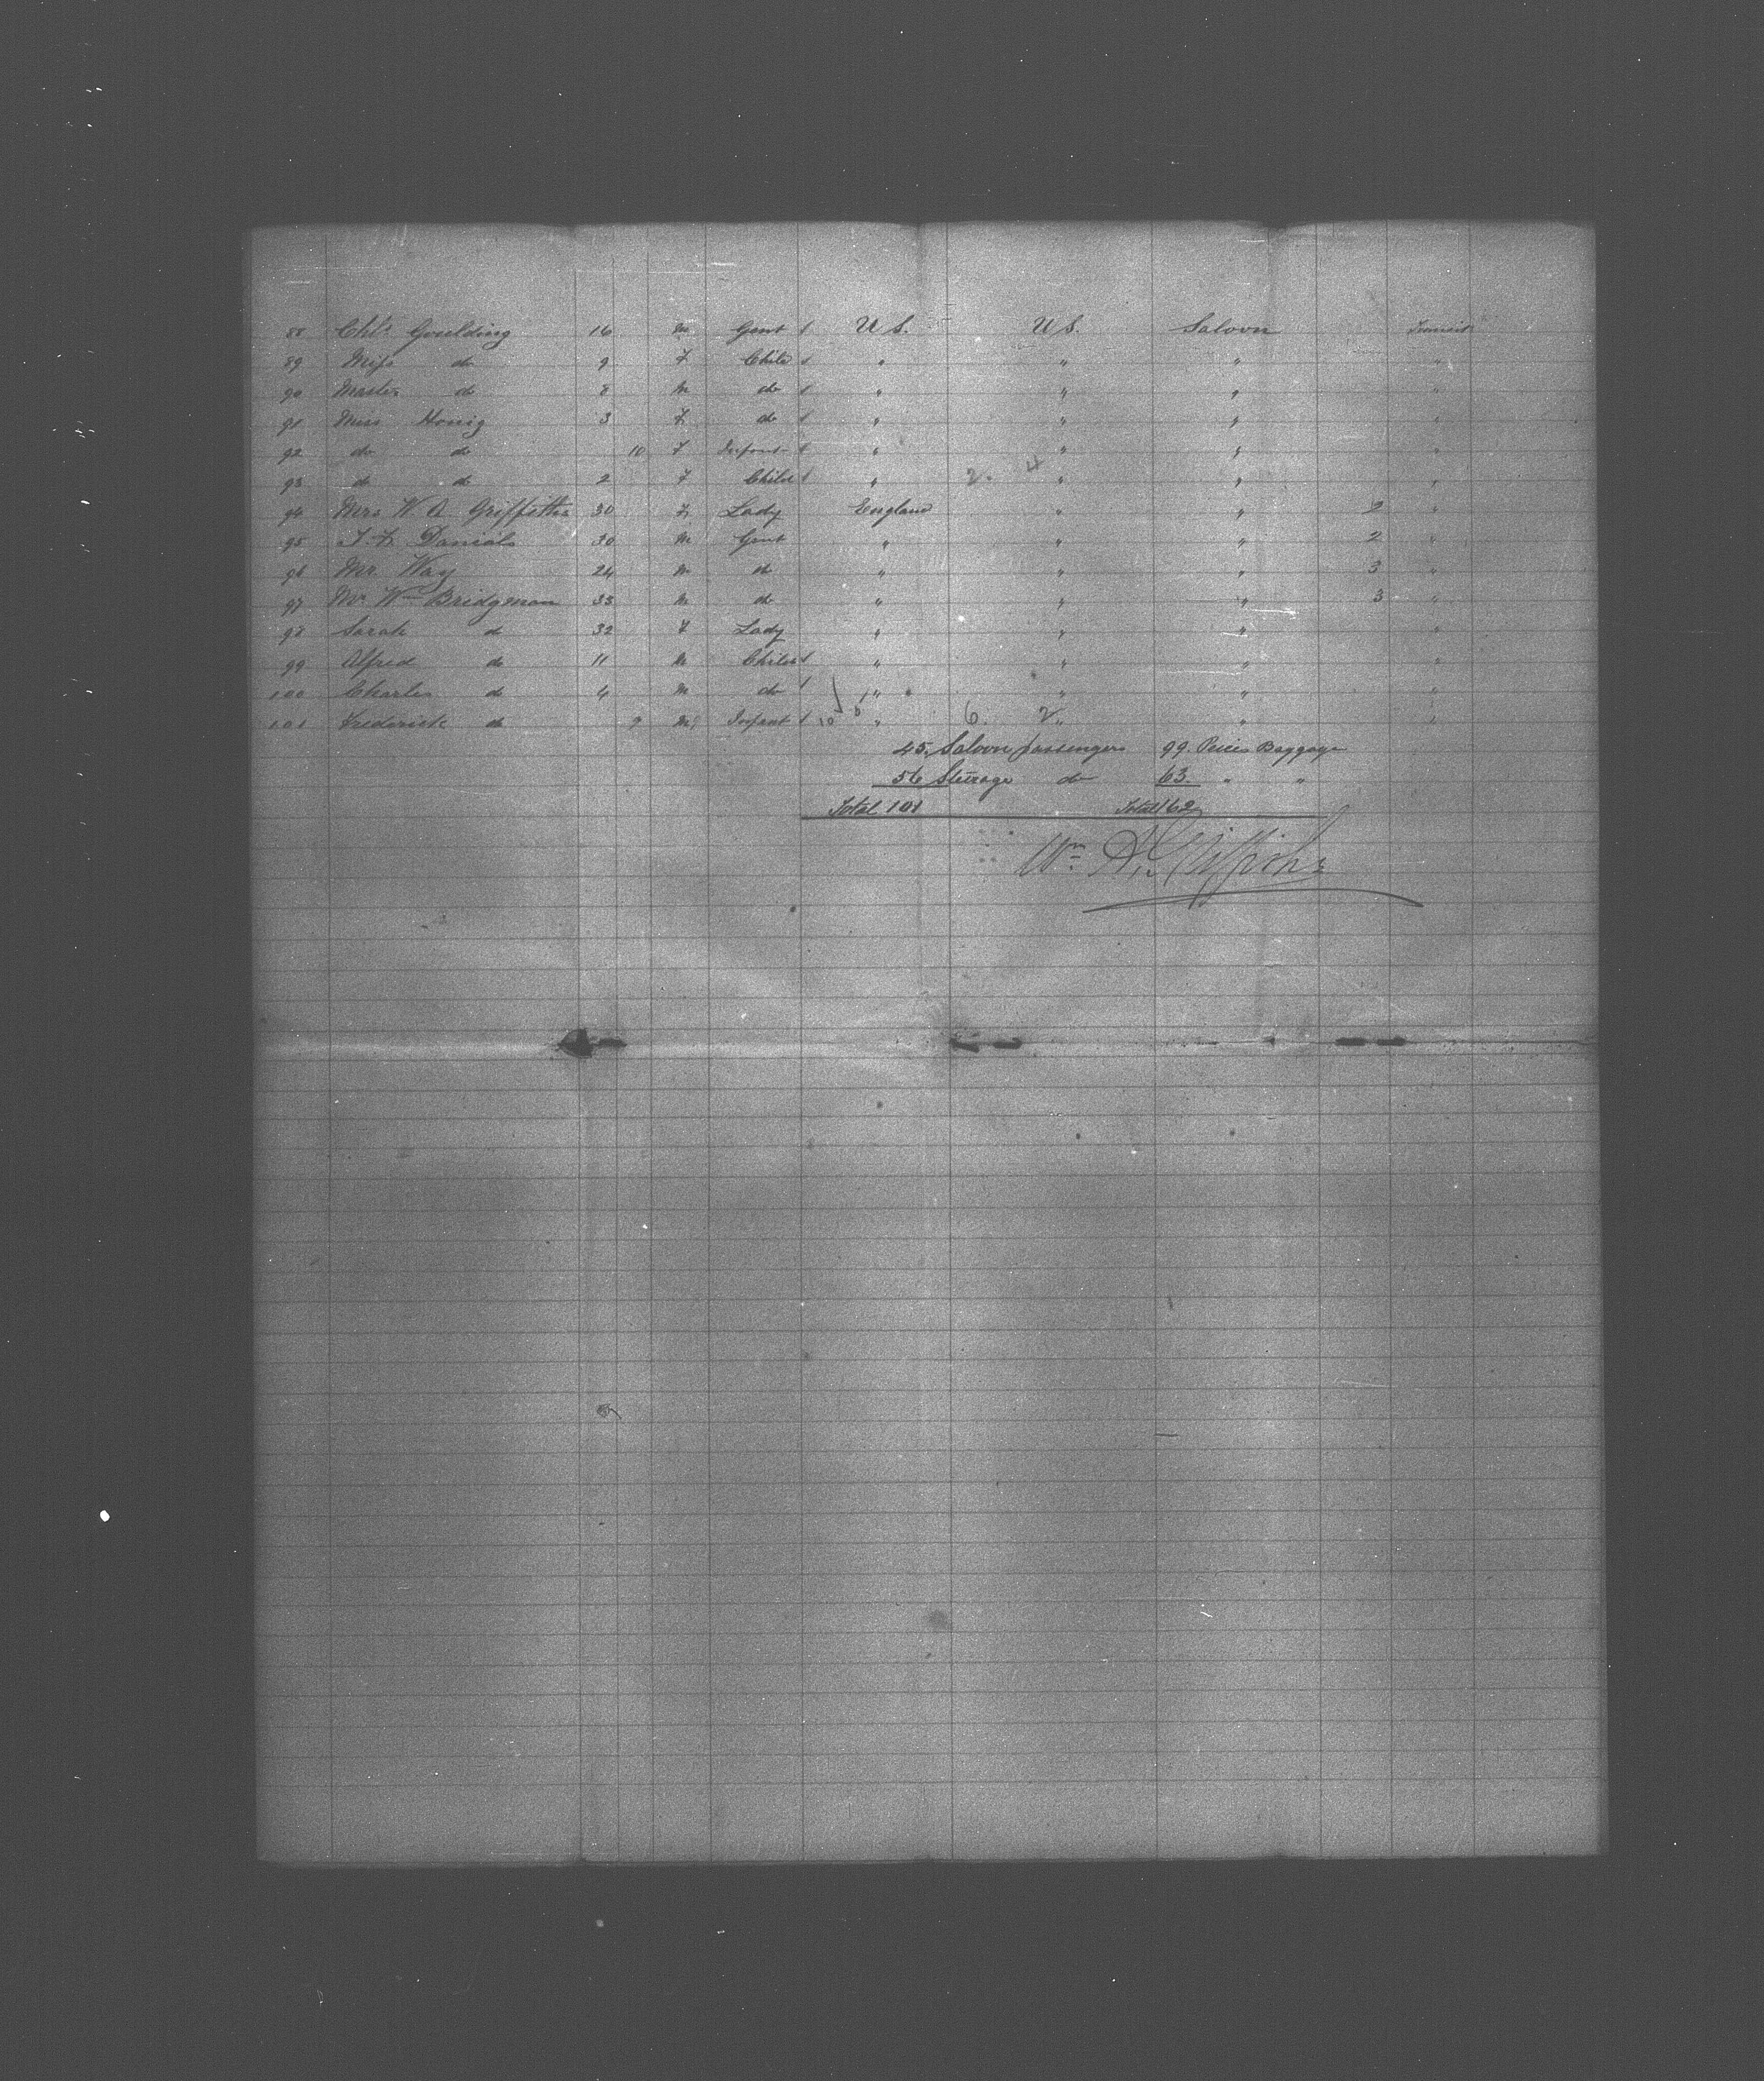 88 Chls Goulding 16 M Gent U S. U S. Saloon Transit
89 Miss do 9 F Child " " " "
90 Master do 8 M do " " " "
91 Miss Honig 3 F do " " " "
92 do do 10 F Infant " " " "
93 do do 2 F Child " 2. 4 " " "
94 Mrs W A Griffiths 30 F Lady England " " 2 "
95 J. F. Daniels 30 M Gent " " " 2 "
96 Mr Way 24 M do " " " 3 "
97 Mr Wm Bridgman 35 M do " " " 3 "
98 Sarah do 32 F Lady " " " "
99 Alfred do 11 M Child " " " "
100 Charles do 4 M do " " " "
101 Frederick do 9 M Infant 10 " 6. 2 " " "
45. Saloon passengers 99. Peices Baggage
56 Steerage do 63. " "
Total 101 Total 162
Wm A. Griffiths